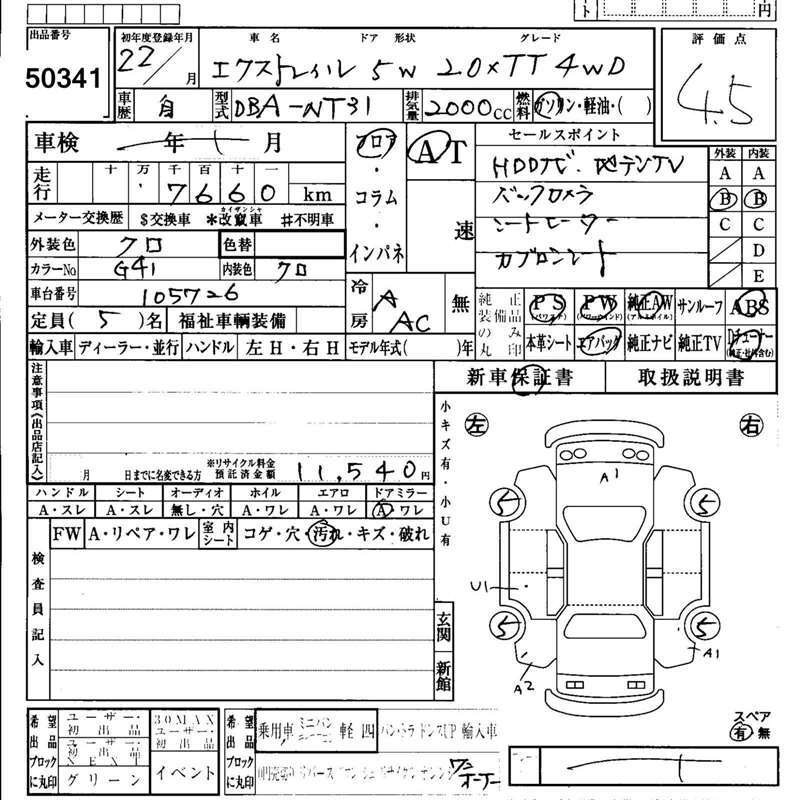 ト 円
出品番号 初年度登録年月 車名 ドア 形状 グレード 評価点
50341 22/ 月 エクストレイル 5W 20XTT 4WD 4.5
車歴 自 型式 DBA-NT31 排気量 2000cc 燃料 ガソリン・軽油・( )
車検 年 月 フロア AT セールスポイント
HDDナビ 地デジTV
バックカメラ
シートヒーター
カプロンシート
外装 内装
A A
B B
C C
D
E
十 万 千 百 十 一
走行 7660 km
・コラム・インパネ 速
メーター交換歴 $交換車 *改竄車 #不明車
カイザンシャ
外装色 クロ 色替
カラーNo. G41 内装色 クロ
車台番号 105726
冷房 A AC 無
定員( 5 )名 福祉車輌装備
純正装備品のみ丸印 PS PW 純正AW サンルーフ ABS
(パワステ) (パワーウインド) (アルミホイル)
本革シート エアバッグ 純正ナビ 純正TV Dチューナー
(純正・社外含む)
輸入車 ディーラー・並行 ハンドル 左H・右H モデル年式( )年
新車保証書 取扱説明書
注意事項(出品店記入)
月 日までに名変できる方 ※リサイクル料金預託済金額 11,540円
ハンドル シート オーディオ ホイル エアロ ドアミラー
A・スレ A・スレ 無し・穴 A・ワレ A・ワレ A ワレ
FW A・リペア・ワレ 室内シート コゲ・穴・汚れ・キズ・破れ
検査員記入
小キズ有・小U有
左 右
A1
5 5
U1
5 5
A2 A1
玄関
新館
スペア
有 無
希望出品ブロックに丸印 ユーザー・初出品 30MAXユーザー・初出品
ユーザー・初出品NEXT
グリーン イベント
希望出品ブロックに丸印 乗用車 ミニバン 軽 四 輸入車